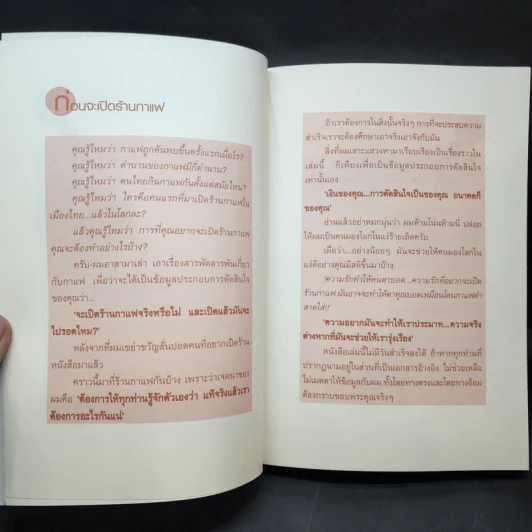 ก่อนจะเปิดร้านกาแฟ
คุณรู้ไหมว่า กาแฟถูกค้นพบขึ้นครั้งแรกเมื่อไร?
คุณรู้ไหมว่า ตำนานของกาแฟมีกี่ตำนาน?
คุณรู้ไหมว่า คนไทยกินกาแฟกันตั้งแต่สมัยไหน?
คุณรู้ไหมว่า ใครคือคนแรกที่มาเปิดร้านกาแฟใน
เมืองไทย...แล้วในโลกล่ะ?
แล้วคุณรู้ไหมว่า การที่คุณอยากจะเปิดร้านกาแฟ
คุณจะต้องทำอย่างไรบ้าง?
ครับ-ผมอาสามาเล่า เอาเรื่องสารพัดสารพันเกี่ยว
กับกาแฟ เพื่อว่าจะได้เป็นข้อมูลประกอบการตัดสินใจ
ของคุณว่า...
'จะเปิดร้านกาแฟจริงหรือไม่ และเปิดแล้วมันจะ
ไปรอดไหม?'
หลังจากที่ผมเขย่าขวัญสั่นปอดคนที่อยากเปิดร้าน
หนังสือมาแล้ว
คราวนี้มาที่ร้านกาแฟกันบ้าง เพราะว่าเจตนาของ
ผมคือ 'ต้องการให้ทุกท่านรู้จักตัวเองว่า แท้จริงแล้วเรา
ต้องการอะไรกันแน่'
ถ้าเราต้องการในสิ่งนั้นจริงๆ การที่จะประสบความ
สำเร็จเราจะต้องศึกษาเอาจริงเอาจังกับมัน
สิ่งที่ผมเสาะแสวงหามาเรียบเรียงเป็นเรื่องราวใน
เล่มนี้ ก็เพียงเพื่อเป็นข้อมูลประกอบการตัดสินใจ
เท่านั้นเอง
'เงินของคุณ...การตัดสินใจเป็นของคุณ อนาคตก็
ของคุณ'
อ่านแล้วอย่าหมกมุ่นว่า ผมห้ามโน่นห้ามนี่ ปล่อย
ให้ผมเป็นคนมองโลกในแง่ร้ายเถิดครับ
เผื่อว่า...อย่างน้อยๆ มันจะช่วยให้คนมองโลกใน
แง่ดีอย่างคุณมีสติขึ้นมาบ้าง
'ความรักทำให้คนตาบอด...ความรักที่อยากจะเปิด
ร้านกาแฟ มันอาจจะทำให้ตาคุณบอดเหมือนโดนกาแฟดำ
สาดใส่!!'
'ความอยากมันจะทำให้เราประมาท...ความจริง
ต่างหากที่มันจะช่วยให้เรารุ่งเรือง'
หนังสือเล่มนี้ไม่มีวันสำเร็จลงได้ ถ้าหากทุกท่านที่
ปรากฏนามอยู่ในส่วนที่เป็นเอกสารอ้างอิง ไม่ช่วยเหลือ
ไม่เมตตาให้ข้อมูลกับผม ทั้งโดยทางตรงและโดยทางอ้อม
ต้องกราบขอบพระคุณจริงๆ